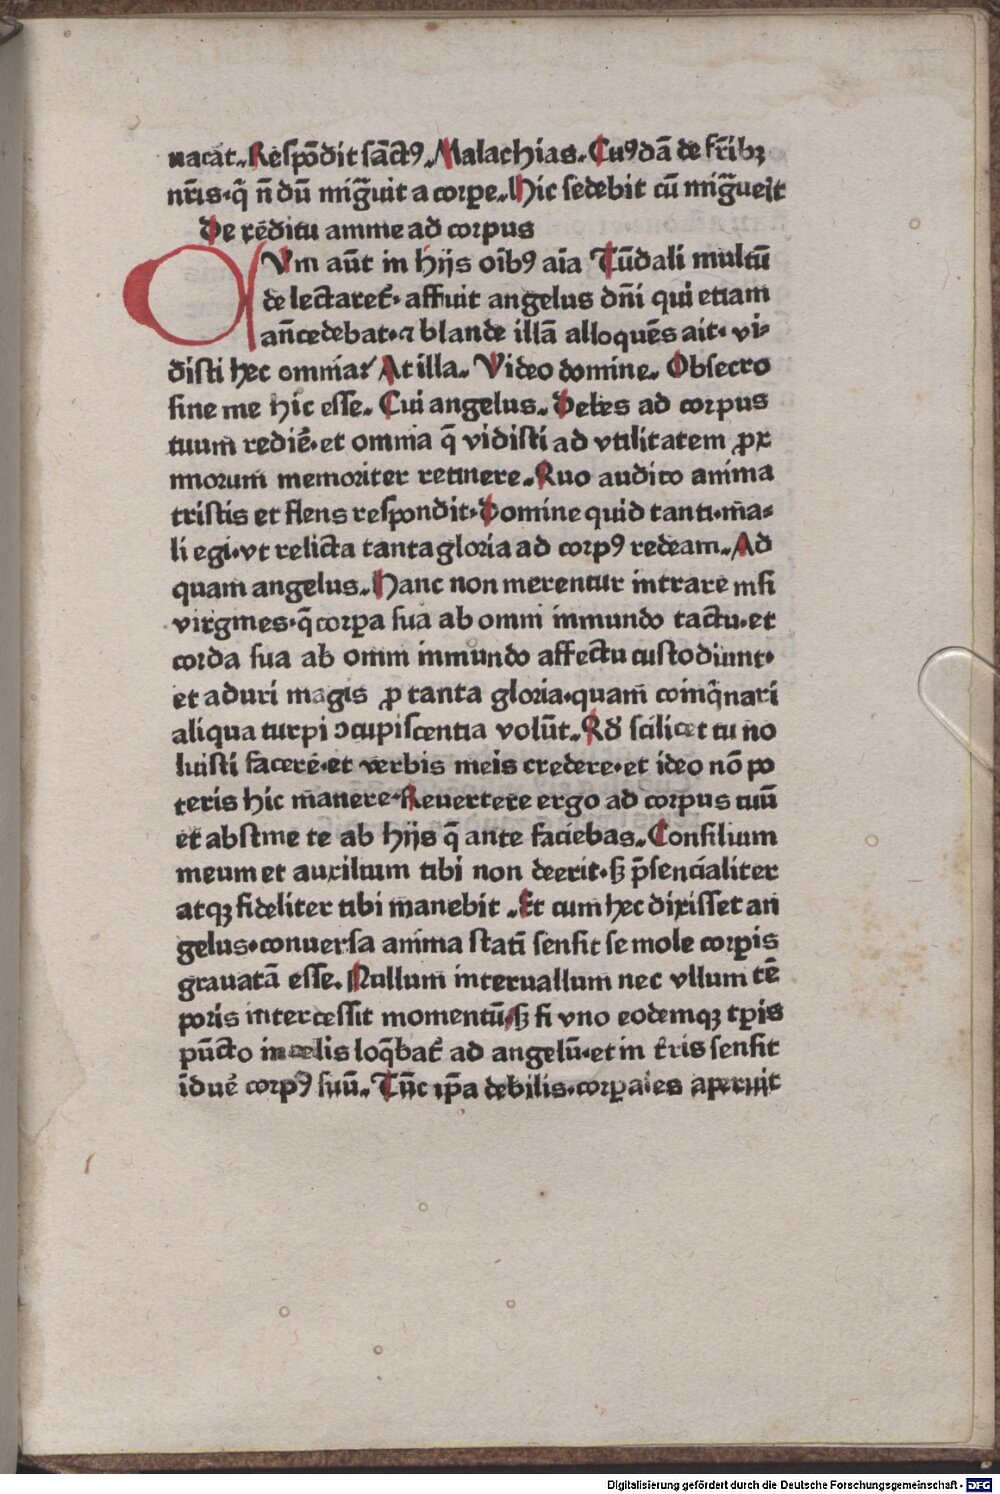 uacāt. Respōdit sāctꝰ. Malachias. Cuꝰdā de fr̄ibꝫ
nr̄is·q̄ n̄ dū mig̃uit a corpe. Hic sedebit cū mig̃ueīt
De rēditu amme ad corpus
QVm aūt in hijs oībꝰ aīa Tūdali multū
de lectaret̄· affuit angelus dn̄i qui etiam
an̄cedebat·⁊ blande illā alloquēs ait· vi⸗
disti hec omnia? At illa. Video domine. Obsecro
sine me hic esse. Cui angelus. Debes ad corpus
tuum rediē·et omnia q̄ vidisti ad vtilitatem ꝓx
imorum memoriter retinere. Quo audito anima
tristis et flens respondit·Domine quid tanti·ma⸗
li egi·vt relicta tanta gloria ad corpꝰ redeam. Ad
quam angelus. Hanc non merentur intrare nisi
virgines·q̄ corꝑa sua ab omni inmundo tactu·et
corda sua ab omni inmundo affectu custodiunt·
et aduri magis ꝓ tanta gloria·quam coinq̄nari
aliqua turpi ↄcupiscentia volūt. Qd̄ scilicet tu no
luisti facere·et verbis meis credere·et ideo nō po
teris hic manere·Reuertere ergo ad corpus tuū
et abstine te ab hijs q̄ ante faciebas. Consilium
meum et auxilium tibi non deerit·sꝫ p̄sencialiter
atqꝫ fideliter tibi manebit. Et cum hec dixisset an
gelus·conuersa anima statī sensit se mole corꝑis
grauatā esse. Nullum interuallum nec vllum tē
poris intercessit momentū·sꝫ si vno eodemqꝫ tꝑis
pūcto in celis loq̄bat̄ ad angelū·et in t̄ris sensit
īduē corpꝰ suū. Tūc ip̄a debilis·corꝑales aperuit
Digitalisierung gefördert durch die Deutsche Forschungsgemeinschaft - DFG